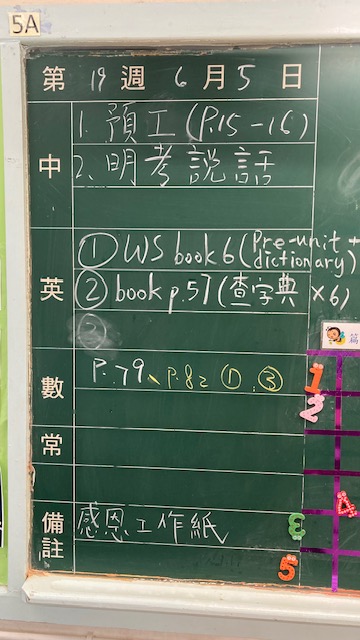 5A
第 19 週 6 月 5 日
中
1. 預工 (P.15-16)
2. 明考說話
英
① WS book 6 (Pre-unit + dictionary)
② book p.57 (查字典 ×6)
③
數
P.79、P.82 ①、③
常
備註
感恩工作紙
篇
1
2
4
3
5